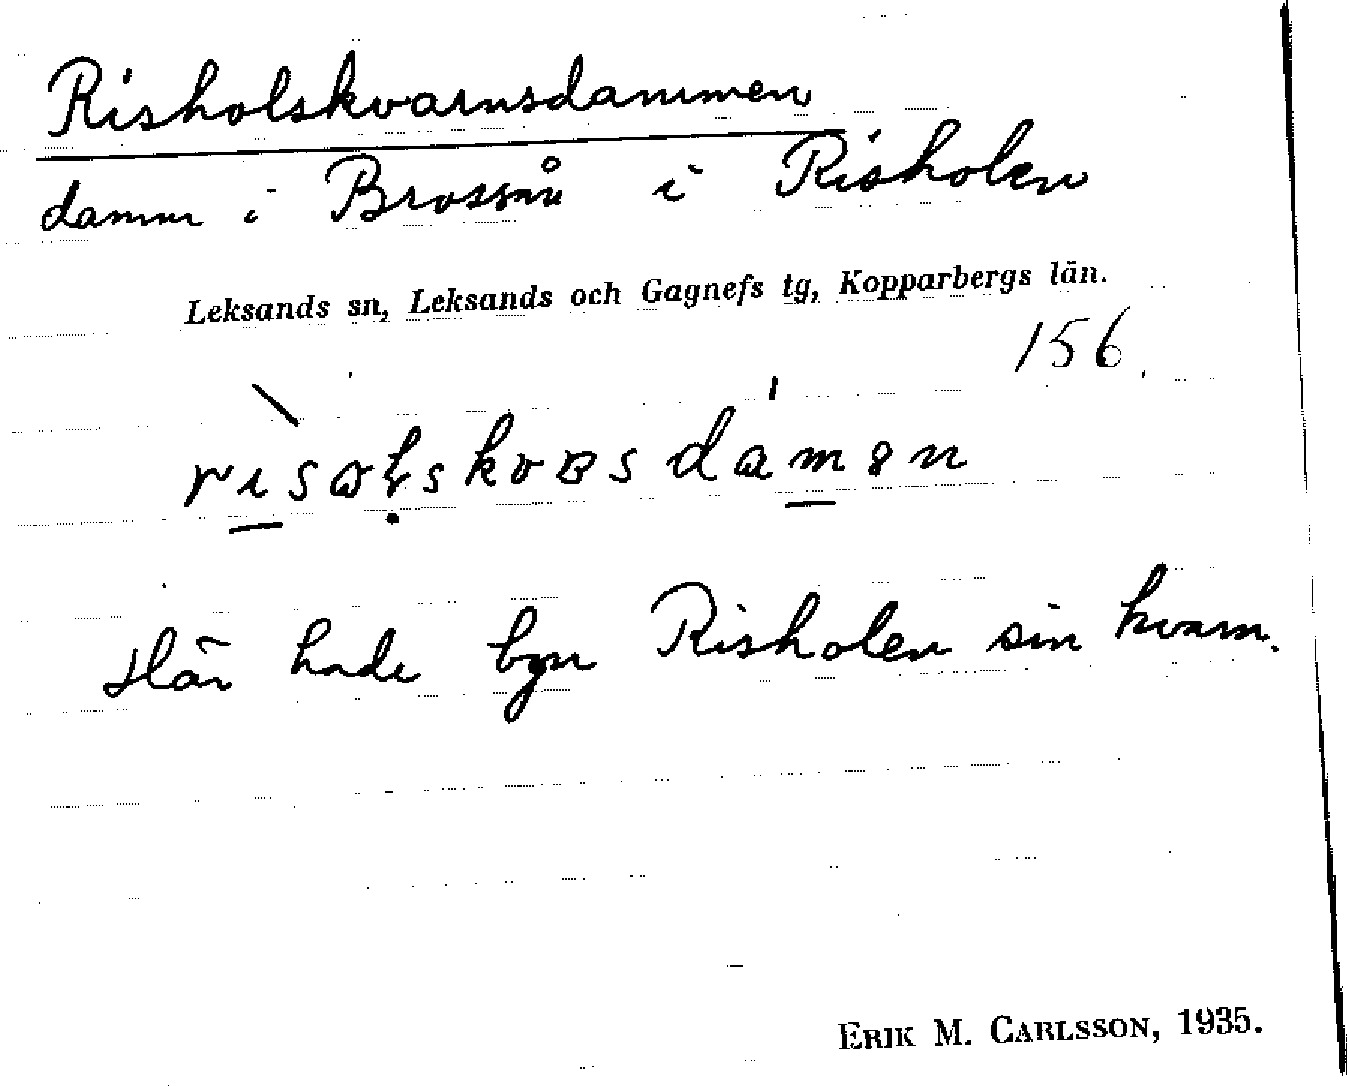 Risholskvarnsdammen
damm i Brossån i Risholen
Leksands sn, Leksands och Gagnefs tg, Kopparbergs län.
156.
Här hade byn Risholen sin kvarn.
ERIK M. CARLSSON, 1935.